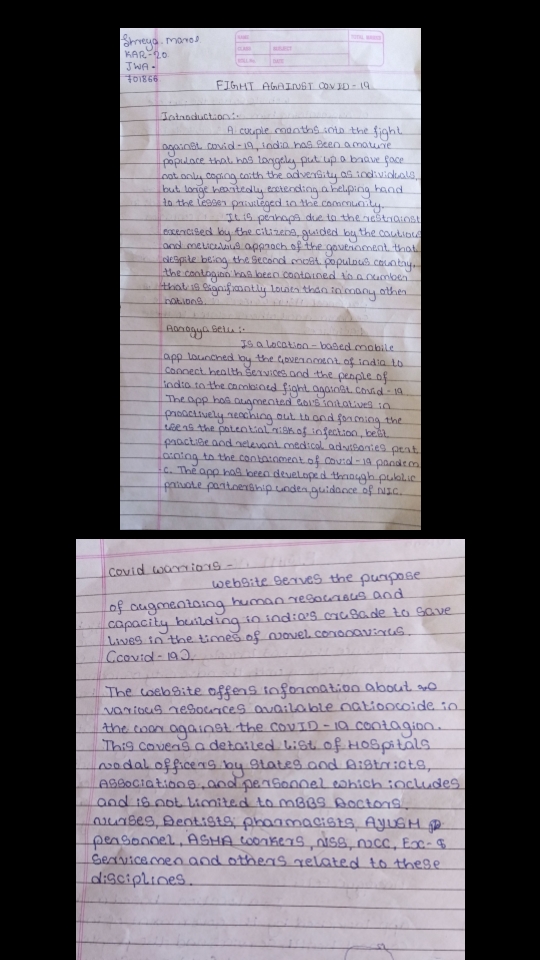 Shreya manos
KAR-20
JWA-
701866
NAME
CLASS SUBJECT
ROLL No. DATE
TOTAL MARKS
FIGHT AGAINST COVID-19
Introduction:-
A couple months into the fight
against covid-19, india has seen a mature
populace that has largely put up a brave face
not only coping with the adversity as individuals,
but large heartedly extending a helping hand
to the lesser privileged in the community.
It is perhaps due to the restrainst
exercised by the citizens, guided by the cautious
and meticulous approch of the government that
despite being the second most populous country,
the contagion has been contained to a number
that is significantly lower than in many other
nations.
Aarogya Setu:-
Is a location-based mobile
app launched by the Government of india to
connect health services and the people of
india in the combined fight against covid-19.
The app has augmented Gov's initatives in
proactively reaching out to and forming the
users the potential risk of infection, best
practise and relevant medical advisories pert
aining to the containment of covid-19 pandem
c. The app has been developed through public
private partnership under guidance of NIC.
Covid warriors-
Website serves the purpose
of augmentaing human resources and
capacity building in india's crusade to save
lives in the times of novel coronavirus.
(covid-19).
The website offers information about
various resources available nationwide in
the war against the COVID-19 contagion.
This covers a detailed list of Hospitals
nodal officers by States and Districts,
Associations, and personnel which includes
and is not limited to MBBS Doctors,
nurses, Dentists, pharmacists, AYUSH
personnel, ASHA workers, NSS, NCC, Ex-
Servicemen and others related to these
disciplines.